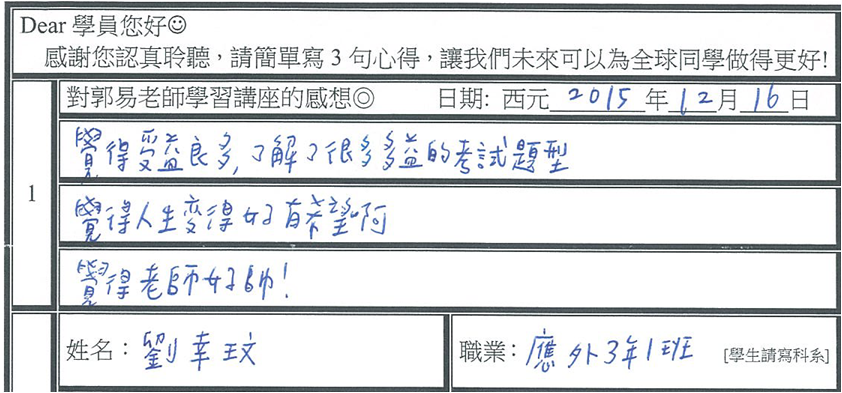 Dear 學員您好☺
感謝您認真聆聽，請簡單寫 3 句心得，讓我們未來可以為全球同學做得更好!
1
對郭易老師學習講座的感想◎ 日期: 西元 2015 年 12 月 16 日
覺得受益良多,了解了很多多益的考試題型
覺得人生變得好有希望啊
覺得老師好帥!
姓名：劉幸玟 職業：應外3年1班 [學生請寫科系]